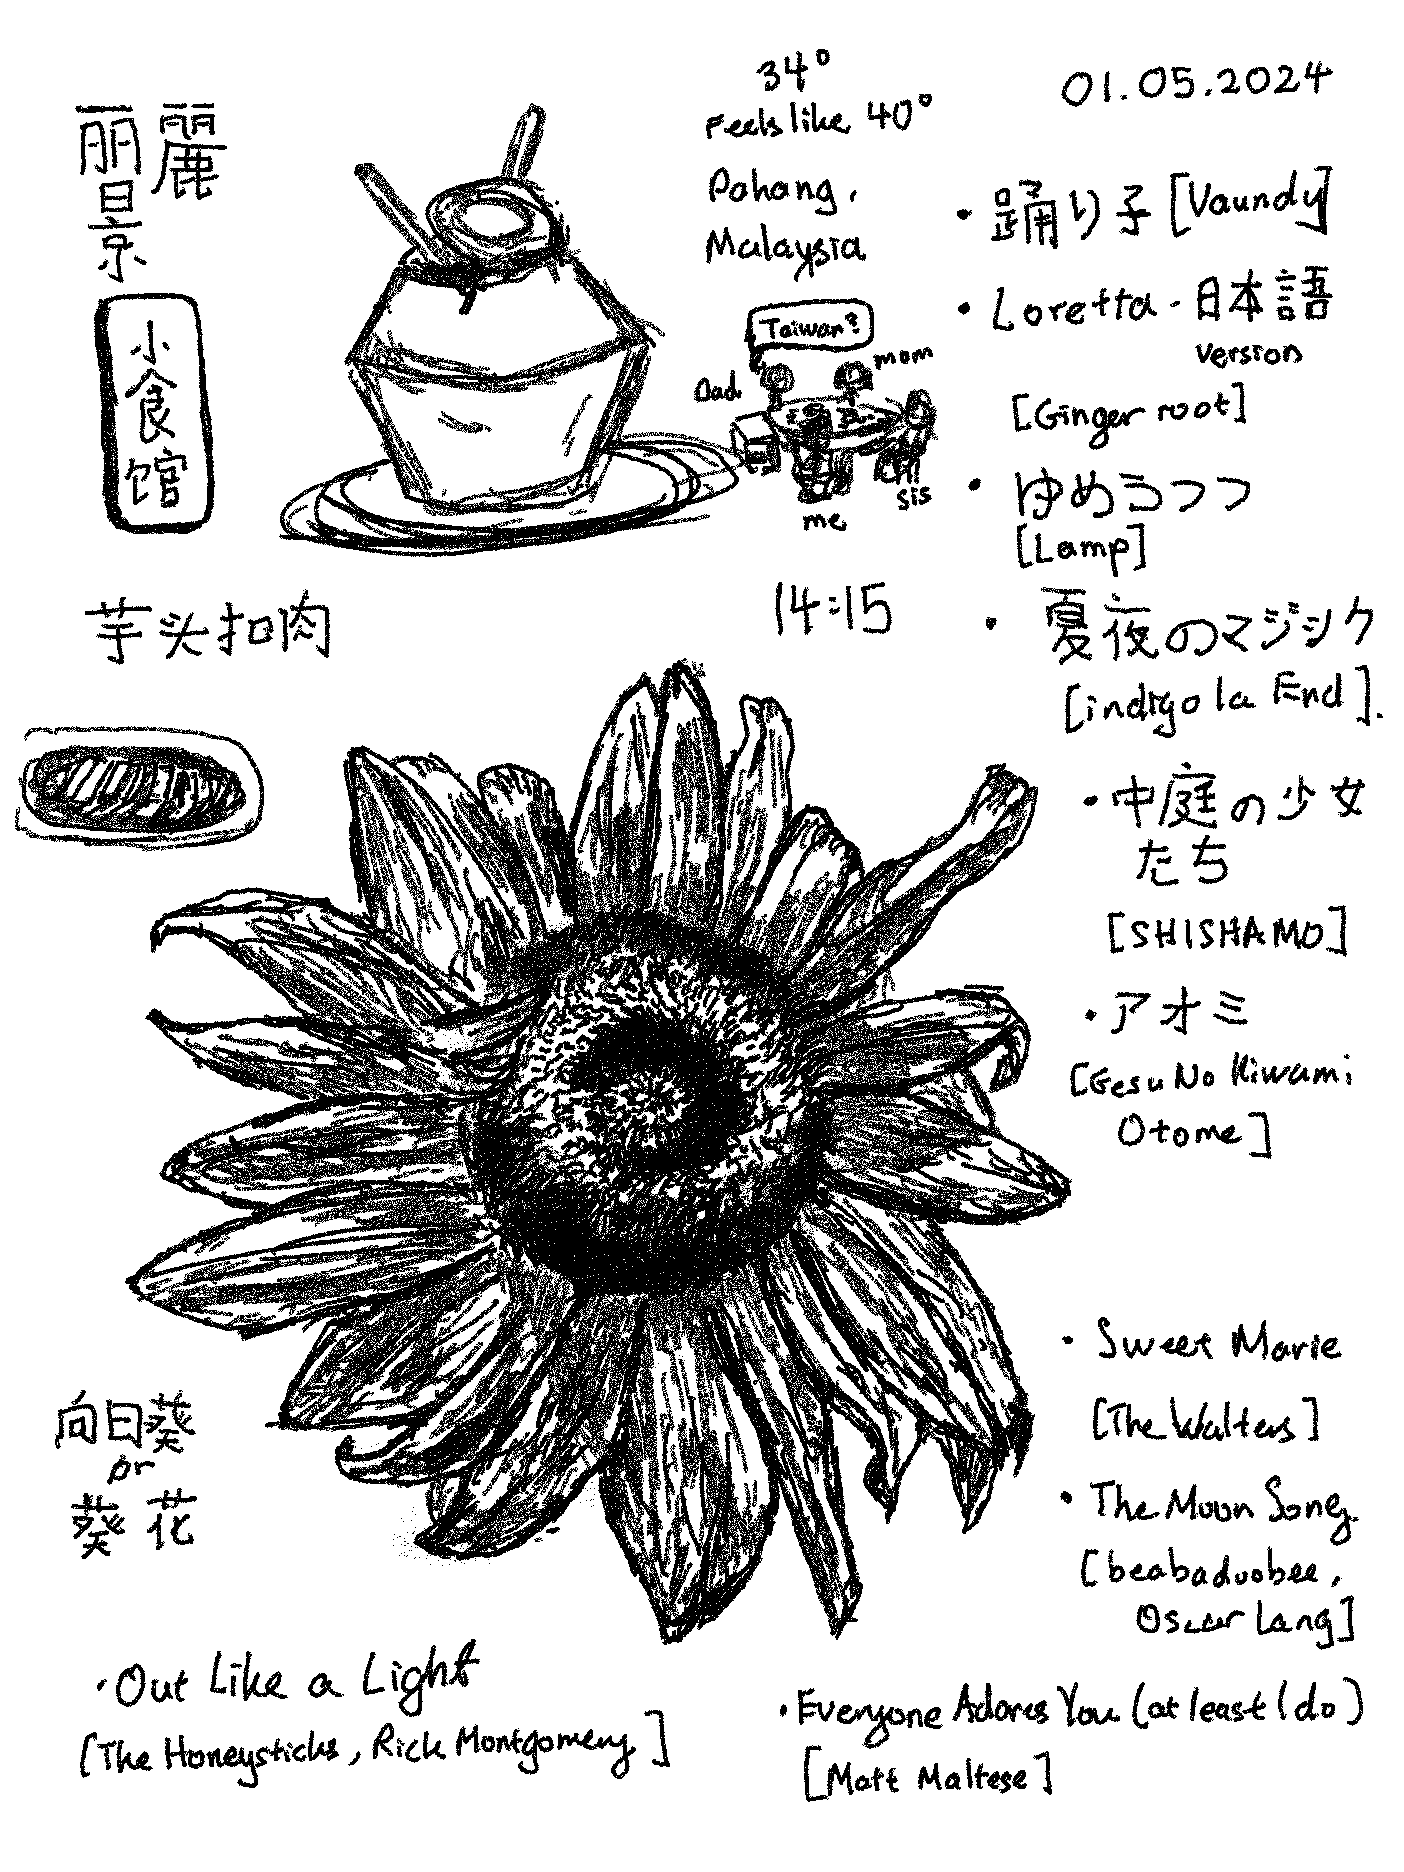 34°
Feels like 40°
Pahang,
Malaysia
01.05.2024
丽景
麗
小食馆
Taiwan?
Dad
mom
sis
me
14:15
芋头扣肉
• 踊り子 [Vaundy]
• Loretta - 日本語
version
[Ginger root]
• ゆめうつつ
[Lamp]
• 夏夜のマジック
[indigo la End].
• 中庭の少女
たち
[SHISHAMO]
• アオミ
[Gesu No Kiwami
Otome]
向日葵
or
葵花
• Sweet Marie
[The Walters]
• The Moon Song.
[beabadoobee,
Oscar Lang]
• Out Like a Light
[The Honeysticks, Rick Montgomery]
• Everyone Adores You (at least I do)
[Matt Maltese]